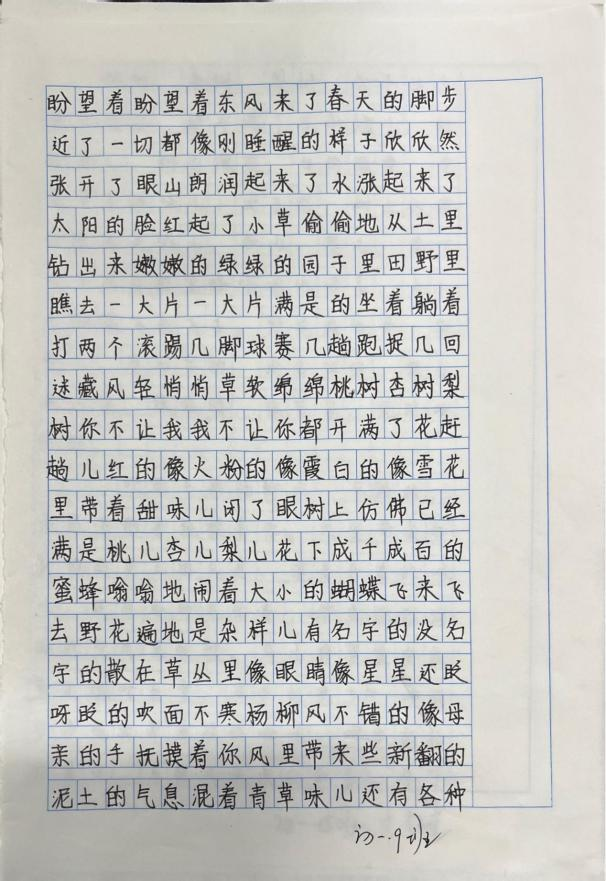 盼望着盼望着东风来了春天的脚步
近了一切都像刚睡醒的样子欣欣然
张开了眼山朗润起来了水涨起来了
太阳的脸红起了小草偷偷地从土里
钻出来嫩嫩的绿绿的园子里田野里
瞧去一大片一大片满是的坐着躺着
打两个滚踢几脚球赛几趟跑捉几回
迷藏风轻悄悄草软绵绵桃树杏树梨
树你不让我我不让你都开满了花赶
趟儿红的像火粉的像霞白的像雪花
里带着甜味儿闭了眼树上仿佛已经
满是桃儿杏儿梨儿花下成千成百的
蜜蜂嗡嗡地闹着大小的蝴蝶飞来飞
去野花遍地是杂样儿有名字的没名
字的散在草丛里像眼睛像星星还眨
呀眨的吹面不寒杨柳风不错的像母
亲的手抚摸着你风里带来些新翻的
泥土的气息混着青草味儿还有各种
初一.9班